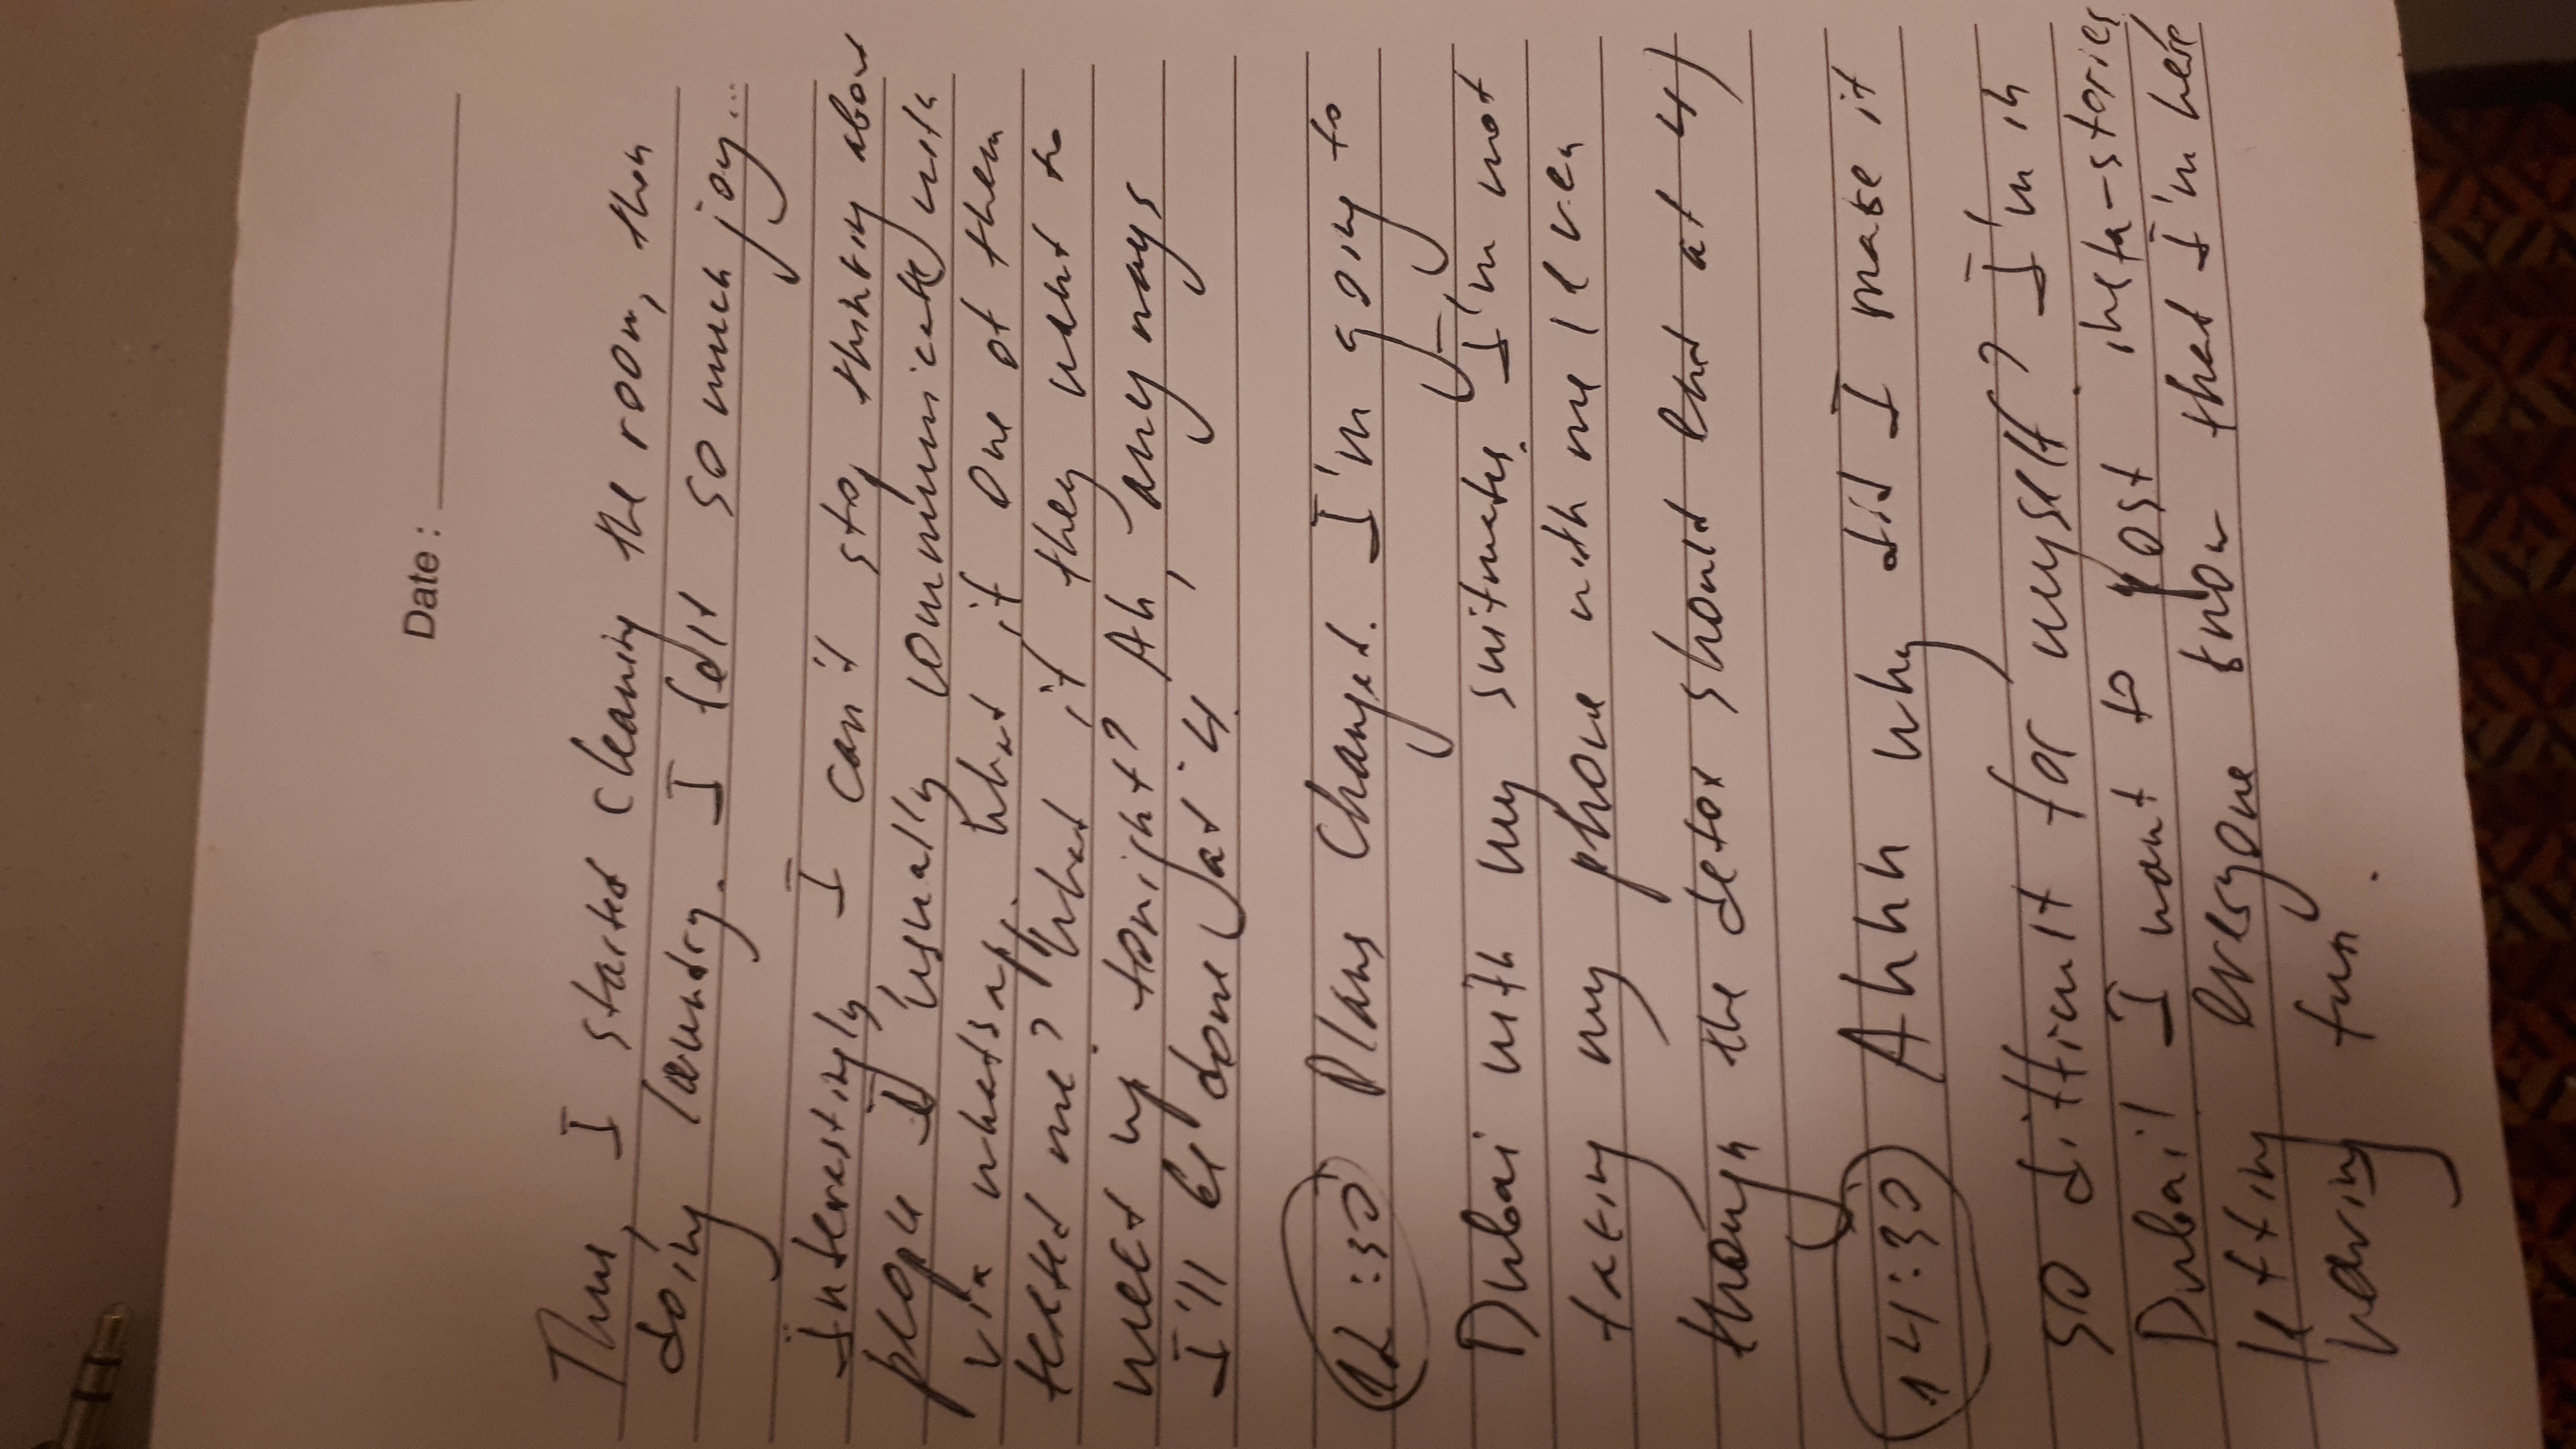 Date:
Thus, I started cleaning the room, then
doing laundry. I felt so much joy...
Interestingly I can't stop thinking about
people I usually communicate with
via whatsapp. What if one of them
texted me? What if they want to
meet up tonight? Ah, anyways
I'll be done at 4.
12:30 Plans changed. I'm going to
Dubai with my suitmates. I'm not
taking my phone with me (even
though the detox should end at 4)
14:30 Ahh why did I make it
so difficult for myself? I'm in
Dubai! I want to post insta-stories
letting everyone know that I'm here
having fun.